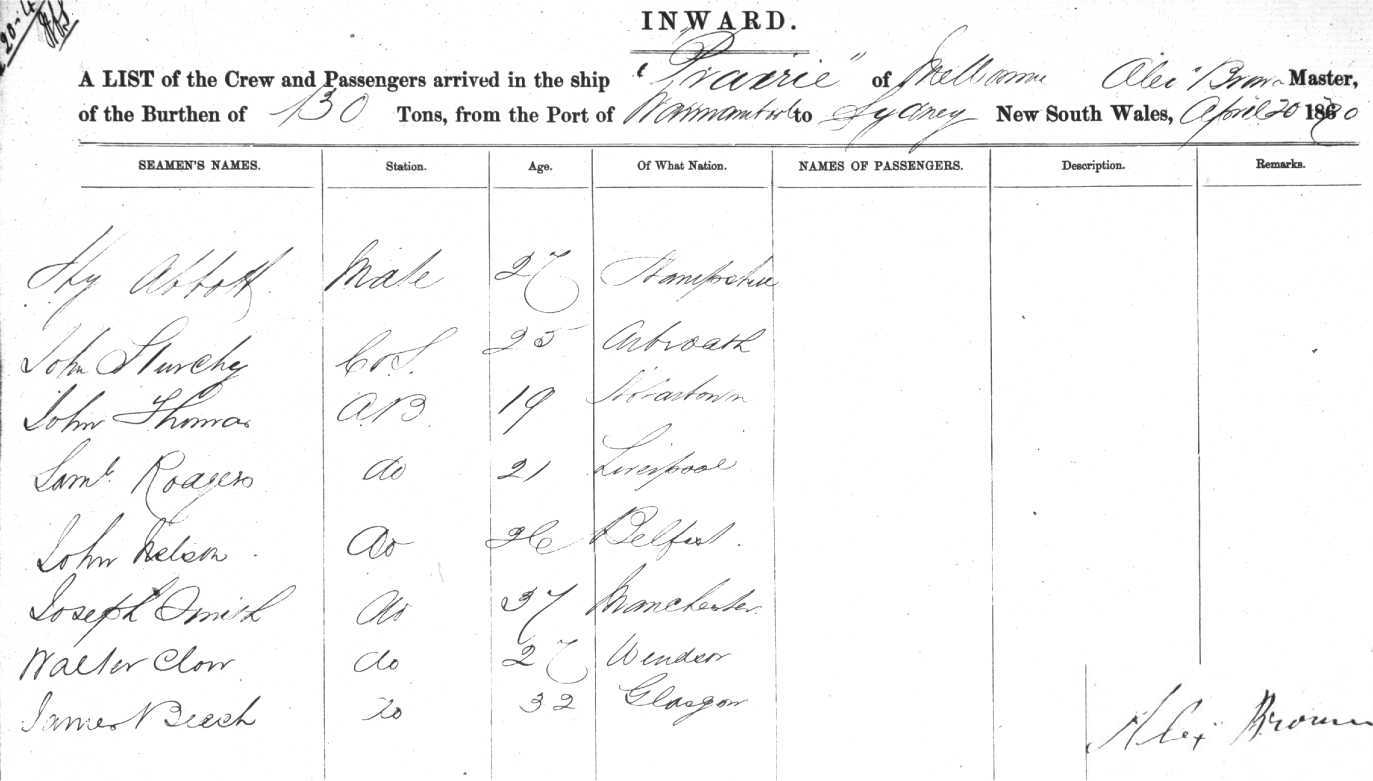 20-4
INWARD.
A LIST of the Crew and Passengers arrived in the ship "Prairie" of Melbourne Alex Brown Master,
of the Burthen of 130 Tons, from the Port of Warrnambool to Sydney New South Wales, April 20 1870
SEAMEN'S NAMES. Station. Age. Of What Nation. NAMES OF PASSENGERS. Description. Remarks.
Hy Abbott Mate 27 Hampshire
John Sturchy C&S. 25 Arbroath
John Thomas AB 19 Hobartown
Saml Rodgers do 21 Liverpool
John Nelson do 26 Belfast.
Joseph Smith do 37 Manchester
Walter Clow do 27 Windsor
James Beech do 32 Glasgow
Alex Brown